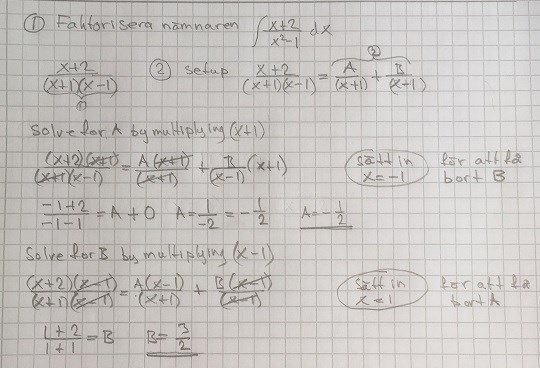 ① Faktorisera nämnaren ∫ x+2/x²-1 dx
x+2/(x+1)(x-1) ① ② setup x+2/(x+1)(x-1) = A/(x+1) + B/(x+1) ②
Solve for A by multiplying (x+1)
(x+2)(x+1)/(x+1)(x-1) = A(x+1)/(x+1) + B/(x-1) (x+1) sätt in x=-1 för att få bort B
-1+2/-1-1 = A+0 A=1/-2 = -1/2 A=-1/2
Solve for B by multiplying (x-1)
(x+2)(x-1)/(x+1)(x-1) = A(x-1)/(x+1) + B(x-1)/(x-1) sätt in x=1 för att få bort A
1+2/1+1 = B B=3/2